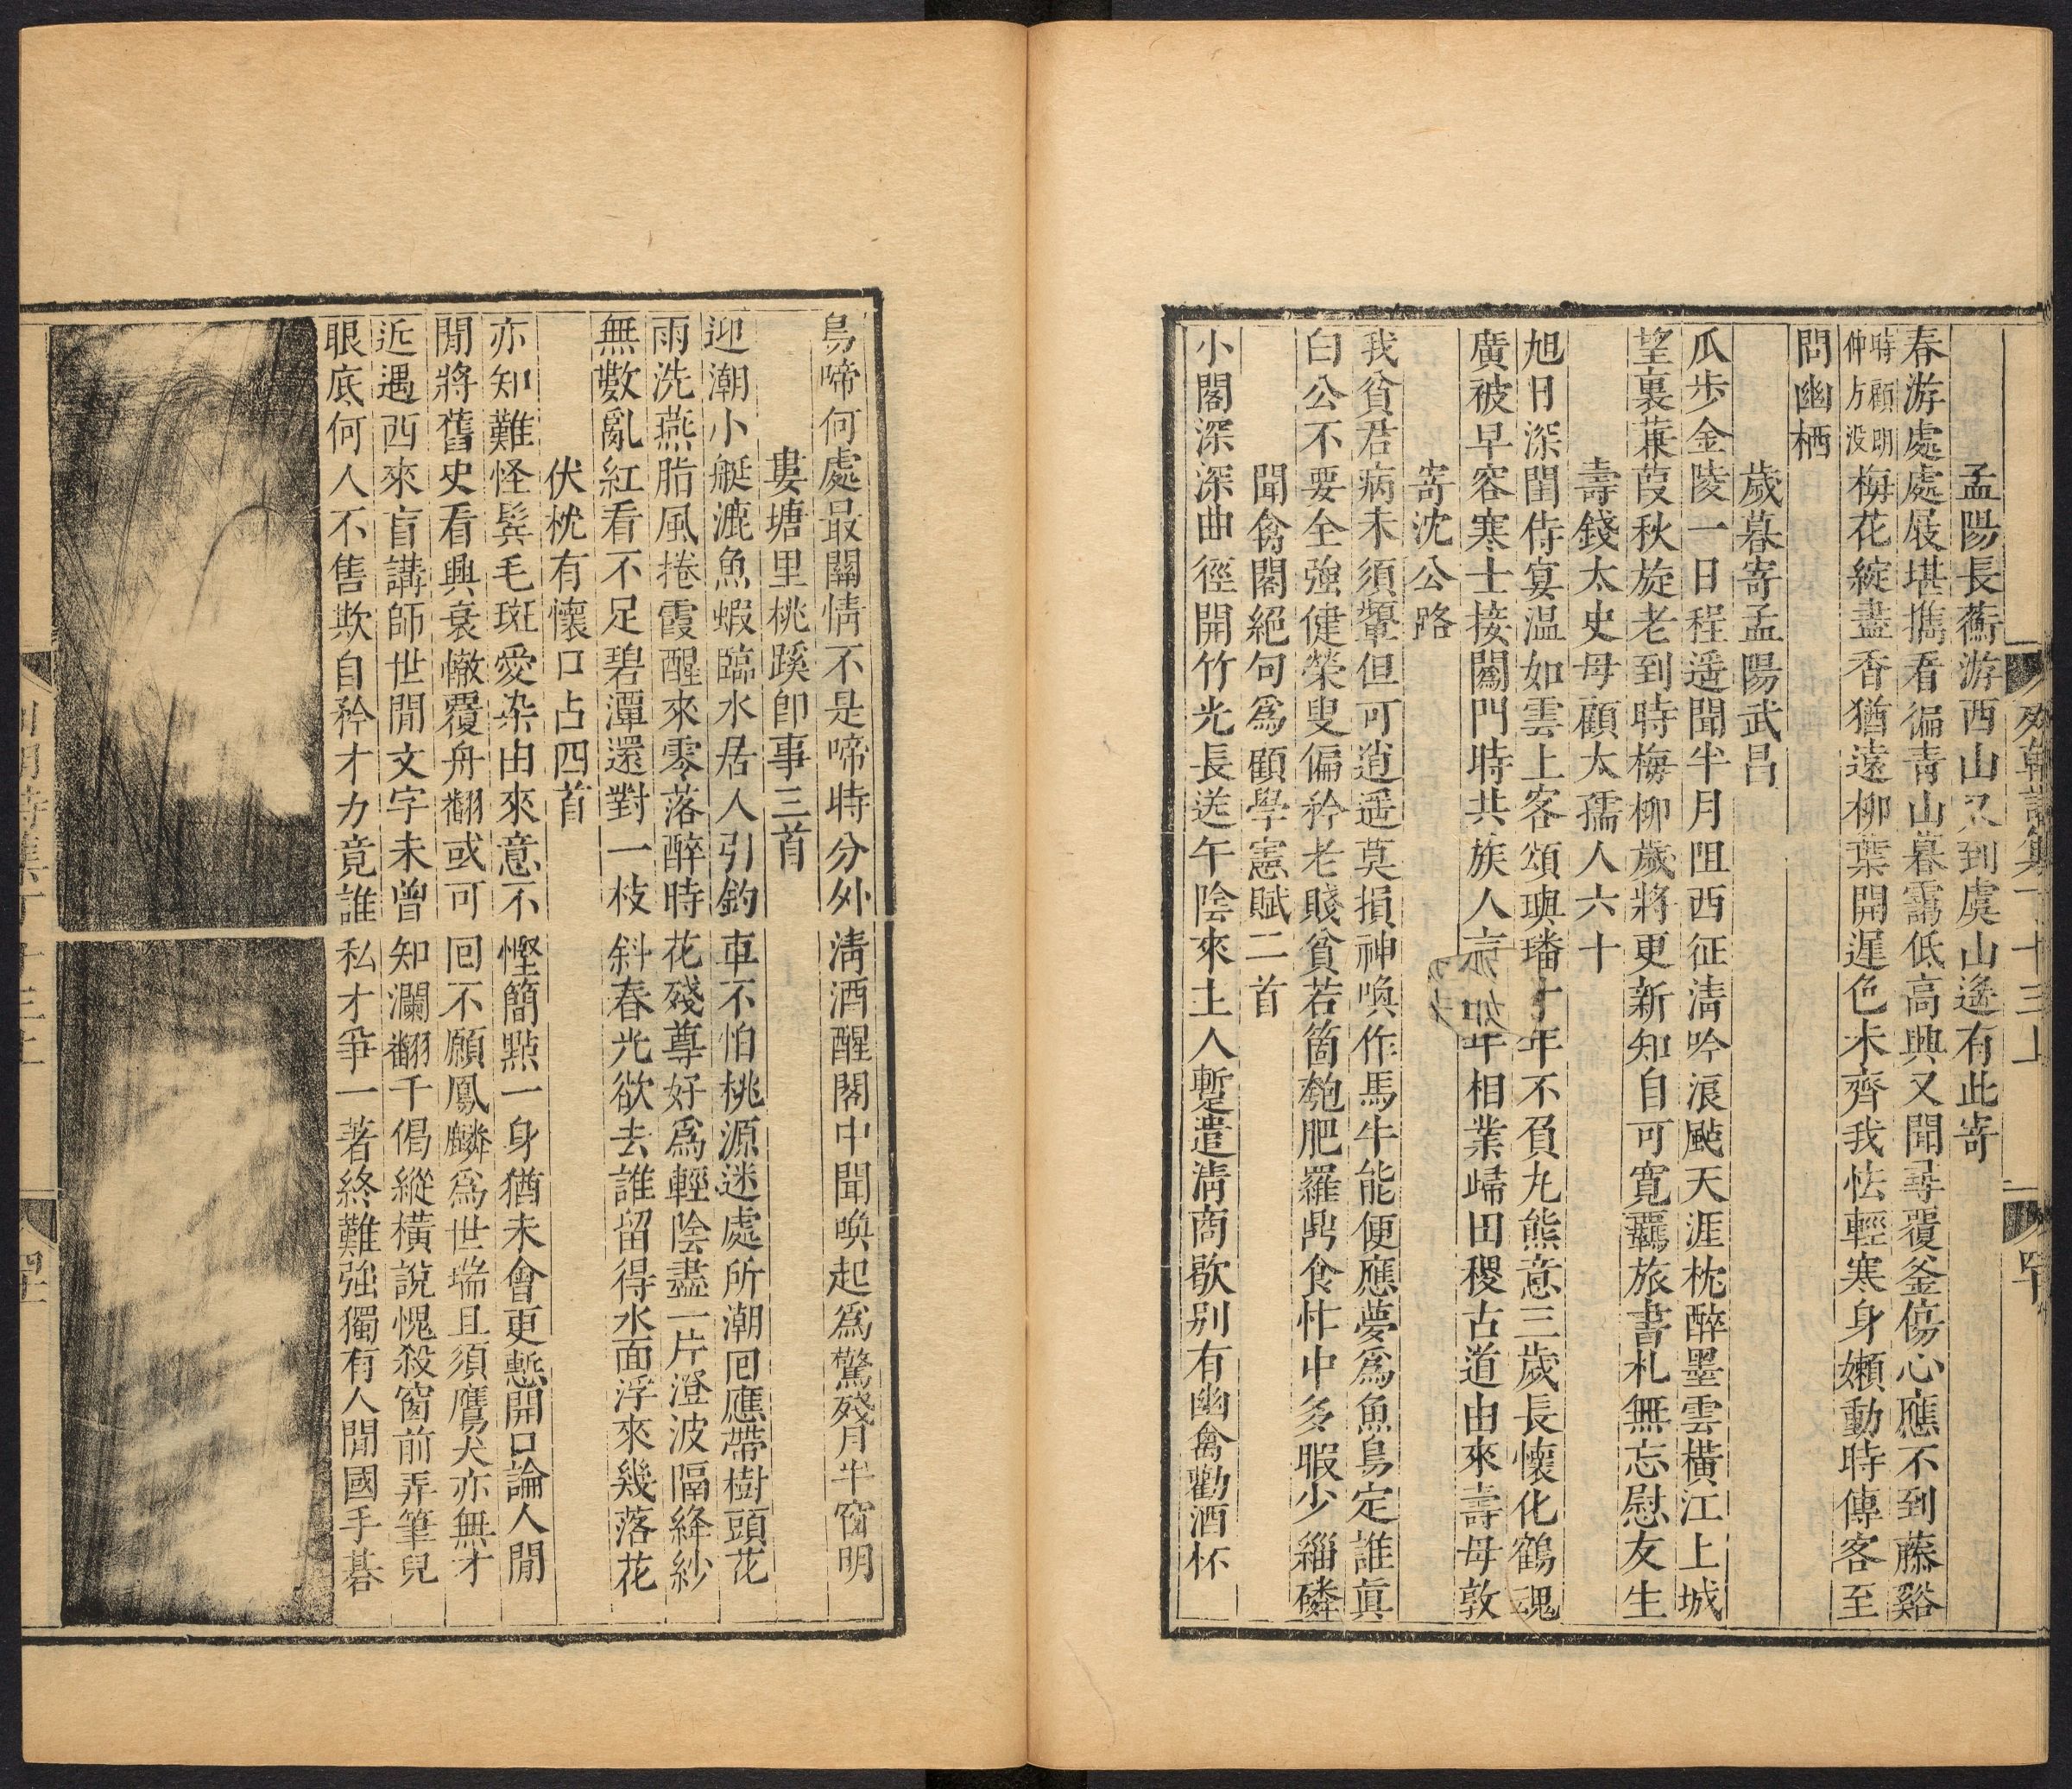 孟陽長蘅游西山又到虞山遙有此寄
春游處處展堪攜看徧青山暮靄低高興又聞尋覆釜傷心應不到藤谿
時顧朗仲方沒梅花綻盡香猶遠柳葉開遲色未齊我怯輕寒身嬾動時傳客至
問幽栖
歲暮寄孟陽武昌
瓜步金陵一日程遥聞半月阻西征清吟浪颭天涯枕醉墨雲橫江上城
望裏蒹葭秋旋老到時梅柳歲將更新知自可寬羈旅書札無忘慰友生
壽錢太史母顧太孺人六十
旭日深閨侍宴温如雲上客頌璵璠十年不負丸熊意三歲長懷化鶴魂
廣被早容寒士接闔門時共族人言如年相業歸田稷古道由來壽母敦
寄沈公路
我貧君病未須顰但可逍遥莫損神喚作馬牛能便應夢爲魚鳥定誰眞
白公不要全強健榮叟偏矜老賤貧若箇匏肥羅鼎食怍中多暇少緇磷
聞禽閣絕句爲顧學憲賦二首
小閣深深曲徑開竹光長送午陰來主人暫遣淸商歇別有幽禽勸酒杯
鳥啼何處最關情不是啼時分外清酒醒閣中聞喚起爲驚殘月半窗明
婁塘里桃蹊卽事三首
迎潮小艇漉魚蝦臨水居人引釣車不怕桃源迷處所潮回應帶樹頭花
雨洗燕脂風捲霞醒來零落醉時花殘尊好爲輕陰盡一片澄波隔絳紗
無數亂紅看不足碧潭還對一枝斜春光欲去誰留得水面浮來幾落花
伏枕有懷口占四首
亦知難怪髩毛斑愛染由來意不慳簡點一身猶未會更慙開口論人間
閒將舊史看興衰轍覆舟翻或可回不願鳳麟爲世瑞且須鷹犬亦無才
近遇西來盲講師世間文字未曾知瀾翻千偈縱橫說愧殺窗前弄筆兒
眼底何人不售欺自矜才力竟誰私才爭一著終難強獨有人間國手棊